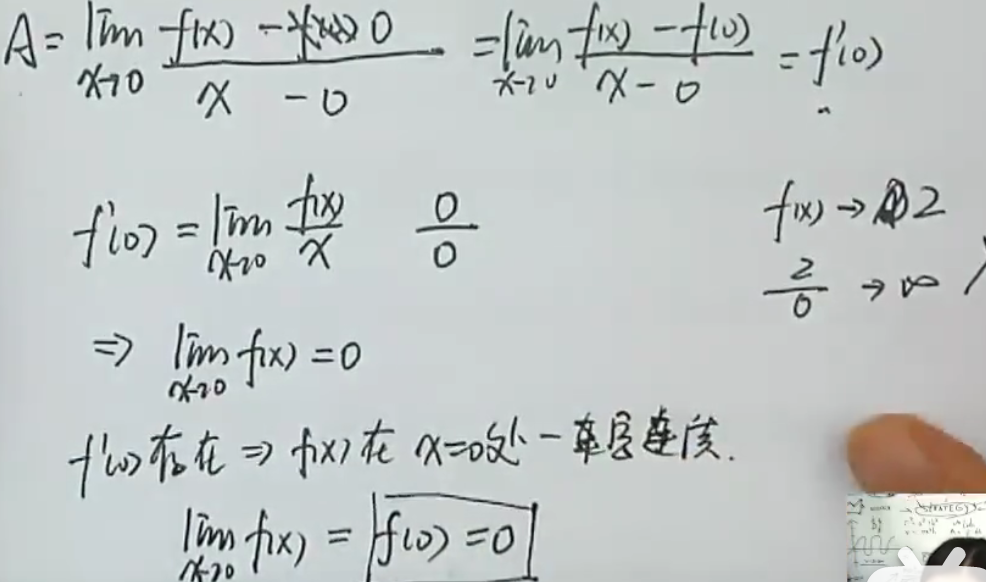 A = lim x→0 f(x) - 0 / x - 0 = lim x→0 f(x) - f(0) / x - 0 = f'(0)
f'(0) = lim x→0 f(x) / x 0 / 0
f(x) → 2
2 / 0 → ∞
⇒ lim x→0 f(x) = 0
f'(0) 存在 ⇒ f(x) 在 x=0处 一定连续.
lim x→0 f(x) = f(0) = 0
STRATEGY